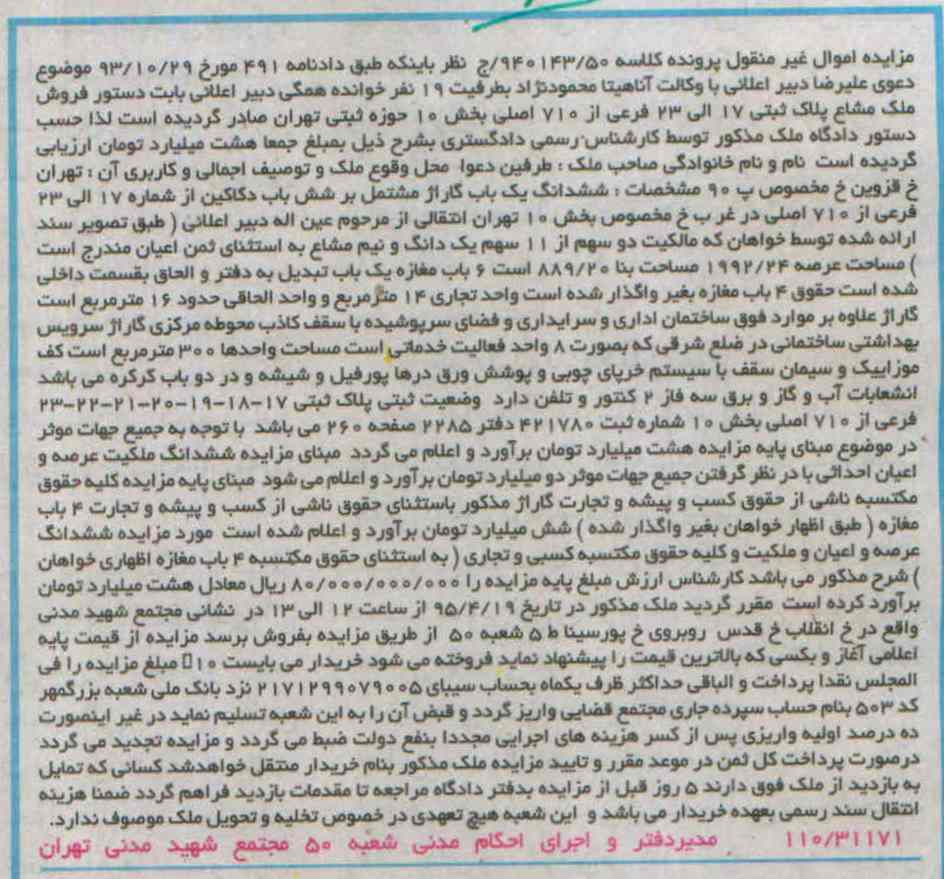 مزایده اموال غیر منقول پرونده کلاسه ۹۴۰۱۴۳/۵۰/ج نظر باینکه طبق دادنامه ۴۹۱ مورخ ۹۳/۱۰/۲۹ موضوع
دعوی علیرضا دبیر اعلائی با وکالت آناهیتا محمودنژاد بطرفیت ۱۹ نفر خوانده همگی دبیر اعلائی بابت دستور فروش
ملک مشاع پلاک ثبتی ۱۷ الی ۲۳ فرعی از ۷۱۰ اصلی بخش ۱۰ حوزه ثبتی تهران صادر گردیده است لذا حسب
دستور دادگاه ملک مذکور توسط کارشناس رسمی دادگستری بشرح ذیل بمبلغ جمعا هشت میلیارد تومان ارزیابی
گردیده است نام و نام خانوادگی صاحب ملک : طرفین دعوا محل وقوع ملک و توصیف اجمالی و کاربری آن : تهران
خ قزوین خ مخصوص پ ۹۰ مشخصات : ششدانگ یک باب گاراژ مشتمل بر شش باب دکاکین از شماره ۱۷ الی ۲۳
فرعی از ۷۱۰ اصلی در غر ب خ مخصوص بخش ۱۰ تهران انتقالی از مرحوم عین اله دبیر اعلائی ( طبق تصویر سند
ارائه شده توسط خواهان که مالکیت دو سهم از ۱۱ سهم یک دانگ و نیم مشاع به استثنای ثمن اعیان مندرج است
) مساحت عرصه ۱۹۹۲/۲۴ مساحت بنا ۸۸۹/۲۰ است ۶ باب مغازه یک باب تبدیل به دفتر و الحاق بقسمت داخلی
شده است حقوق ۴ باب مغازه بغیر واگذار شده است واحد تجاری ۱۴ مترمربع و واحد الحاقی حدود ۱۶ مترمربع است
گاراژ علاوه بر موارد فوق ساختمان اداری و سرایداری و فضای سرپوشیده با سقف کاذب محوطه مرکزی گاراژ سرویس
بهداشتی ساختمانی در ضلع شرقی که بصورت ۸ واحد فعالیت خدماتی است مساحت واحدها ۳۰۰ مترمربع است کف
موزاییک و سیمان سقف با سیستم خرپای چوبی و پوشش ورق درها پورفیل و شیشه و در دو باب کرکره می باشد
انشعابات آب و گاز و برق سه فاز ۲ کنتور و تلفن دارد وضعیت ثبتی پلاک ثبتی ۱۷-۱۸-۱۹-۲۰-۲۱-۲۲-۲۳
فرعی از ۷۱۰ اصلی بخش ۱۰ شماره ثبت ۴۲۱۷۸۰ دفتر ۲۲۸۵ صفحه ۲۶۰ می باشد با توجه به جمیع جهات موثر
در موضوع مبنای پایه مزایده هشت میلیارد تومان برآورد و اعلام می گردد مبنای مزایده ششدانگ ملکیت عرصه و
اعیان احداثی با در نظر گرفتن جمیع جهات موثر دو میلیارد تومان برآورد و اعلام می شود مبنای پایه مزایده کلیه حقوق
مکتسبه ناشی از حقوق کسب و پیشه و تجارت گاراژ مذکور باستثنای حقوق ناشی از کسب و پیشه و تجارت ۴ باب
مغازه ( طبق اظهار خواهان بغیر واگذار شده ) شش میلیارد تومان برآورد و اعلام شده است مورد مزایده ششدانگ
عرصه و اعیان و ملکیت و کلیه حقوق مکتسبه کسبی و تجاری ( به استثنای حقوق مکتسبه ۴ باب مغازه اظهاری خواهان
) شرح مذکور می باشد کارشناس ارزش مبلغ پایه مزایده را ۸۰/۰۰۰/۰۰۰/۰۰۰ ریال معادل هشت میلیارد تومان
برآورد کرده است مقرر گردید ملک مذکور در تاریخ ۹۵/۴/۱۹ از ساعت ۱۲ الی ۱۳ در نشانی مجتمع شهید مدنی
واقع در خ انقلاب خ قدس روبروی خ پورسینا ط ۵ شعبه ۵۰ از طریق مزایده بفروش برسد مزایده از قیمت پایه
اعلامی آغاز و بکسی که بالاترین قیمت را پیشنهاد نماید فروخته می شود خریدار می بایست ۱۰▯ مبلغ مزایده را فی
المجلس نقدا پرداخت و الباقی حداکثر ظرف یکماه بحساب سیبای ۲۱۷۱۲۹۹۰۷۹۰۰۵ نزد بانک ملی شعبه بزرگمهر
کد ۵۰۳ بنام حساب سپرده جاری مجتمع قضایی واریز گردد و قبض آن را به این شعبه تسلیم نماید در غیر اینصورت
ده درصد اولیه واریزی پس از کسر هزینه های اجرایی مجددا بنفع دولت ضبط می گردد و مزایده تجدید می گردد
درصورت پرداخت کل ثمن در موعد مقرر و تایید مزایده ملک مذکور بنام خریدار منتقل خواهدشد کسانی که تمایل
به بازدید از ملک فوق دارند ۵ روز قبل از مزایده بدفتر دادگاه مراجعه تا مقدمات بازدید فراهم گردد ضمنا هزینه
انتقال سند رسمی بعهده خریدار می باشد و این شعبه هیچ تعهدی در خصوص تخلیه و تحویل ملک موصوف ندارد.
۱۱۰/۳۱۱۷۱ مدیردفتر و اجرای احکام مدنی شعبه ۵۰ مجتمع شهید مدنی تهران